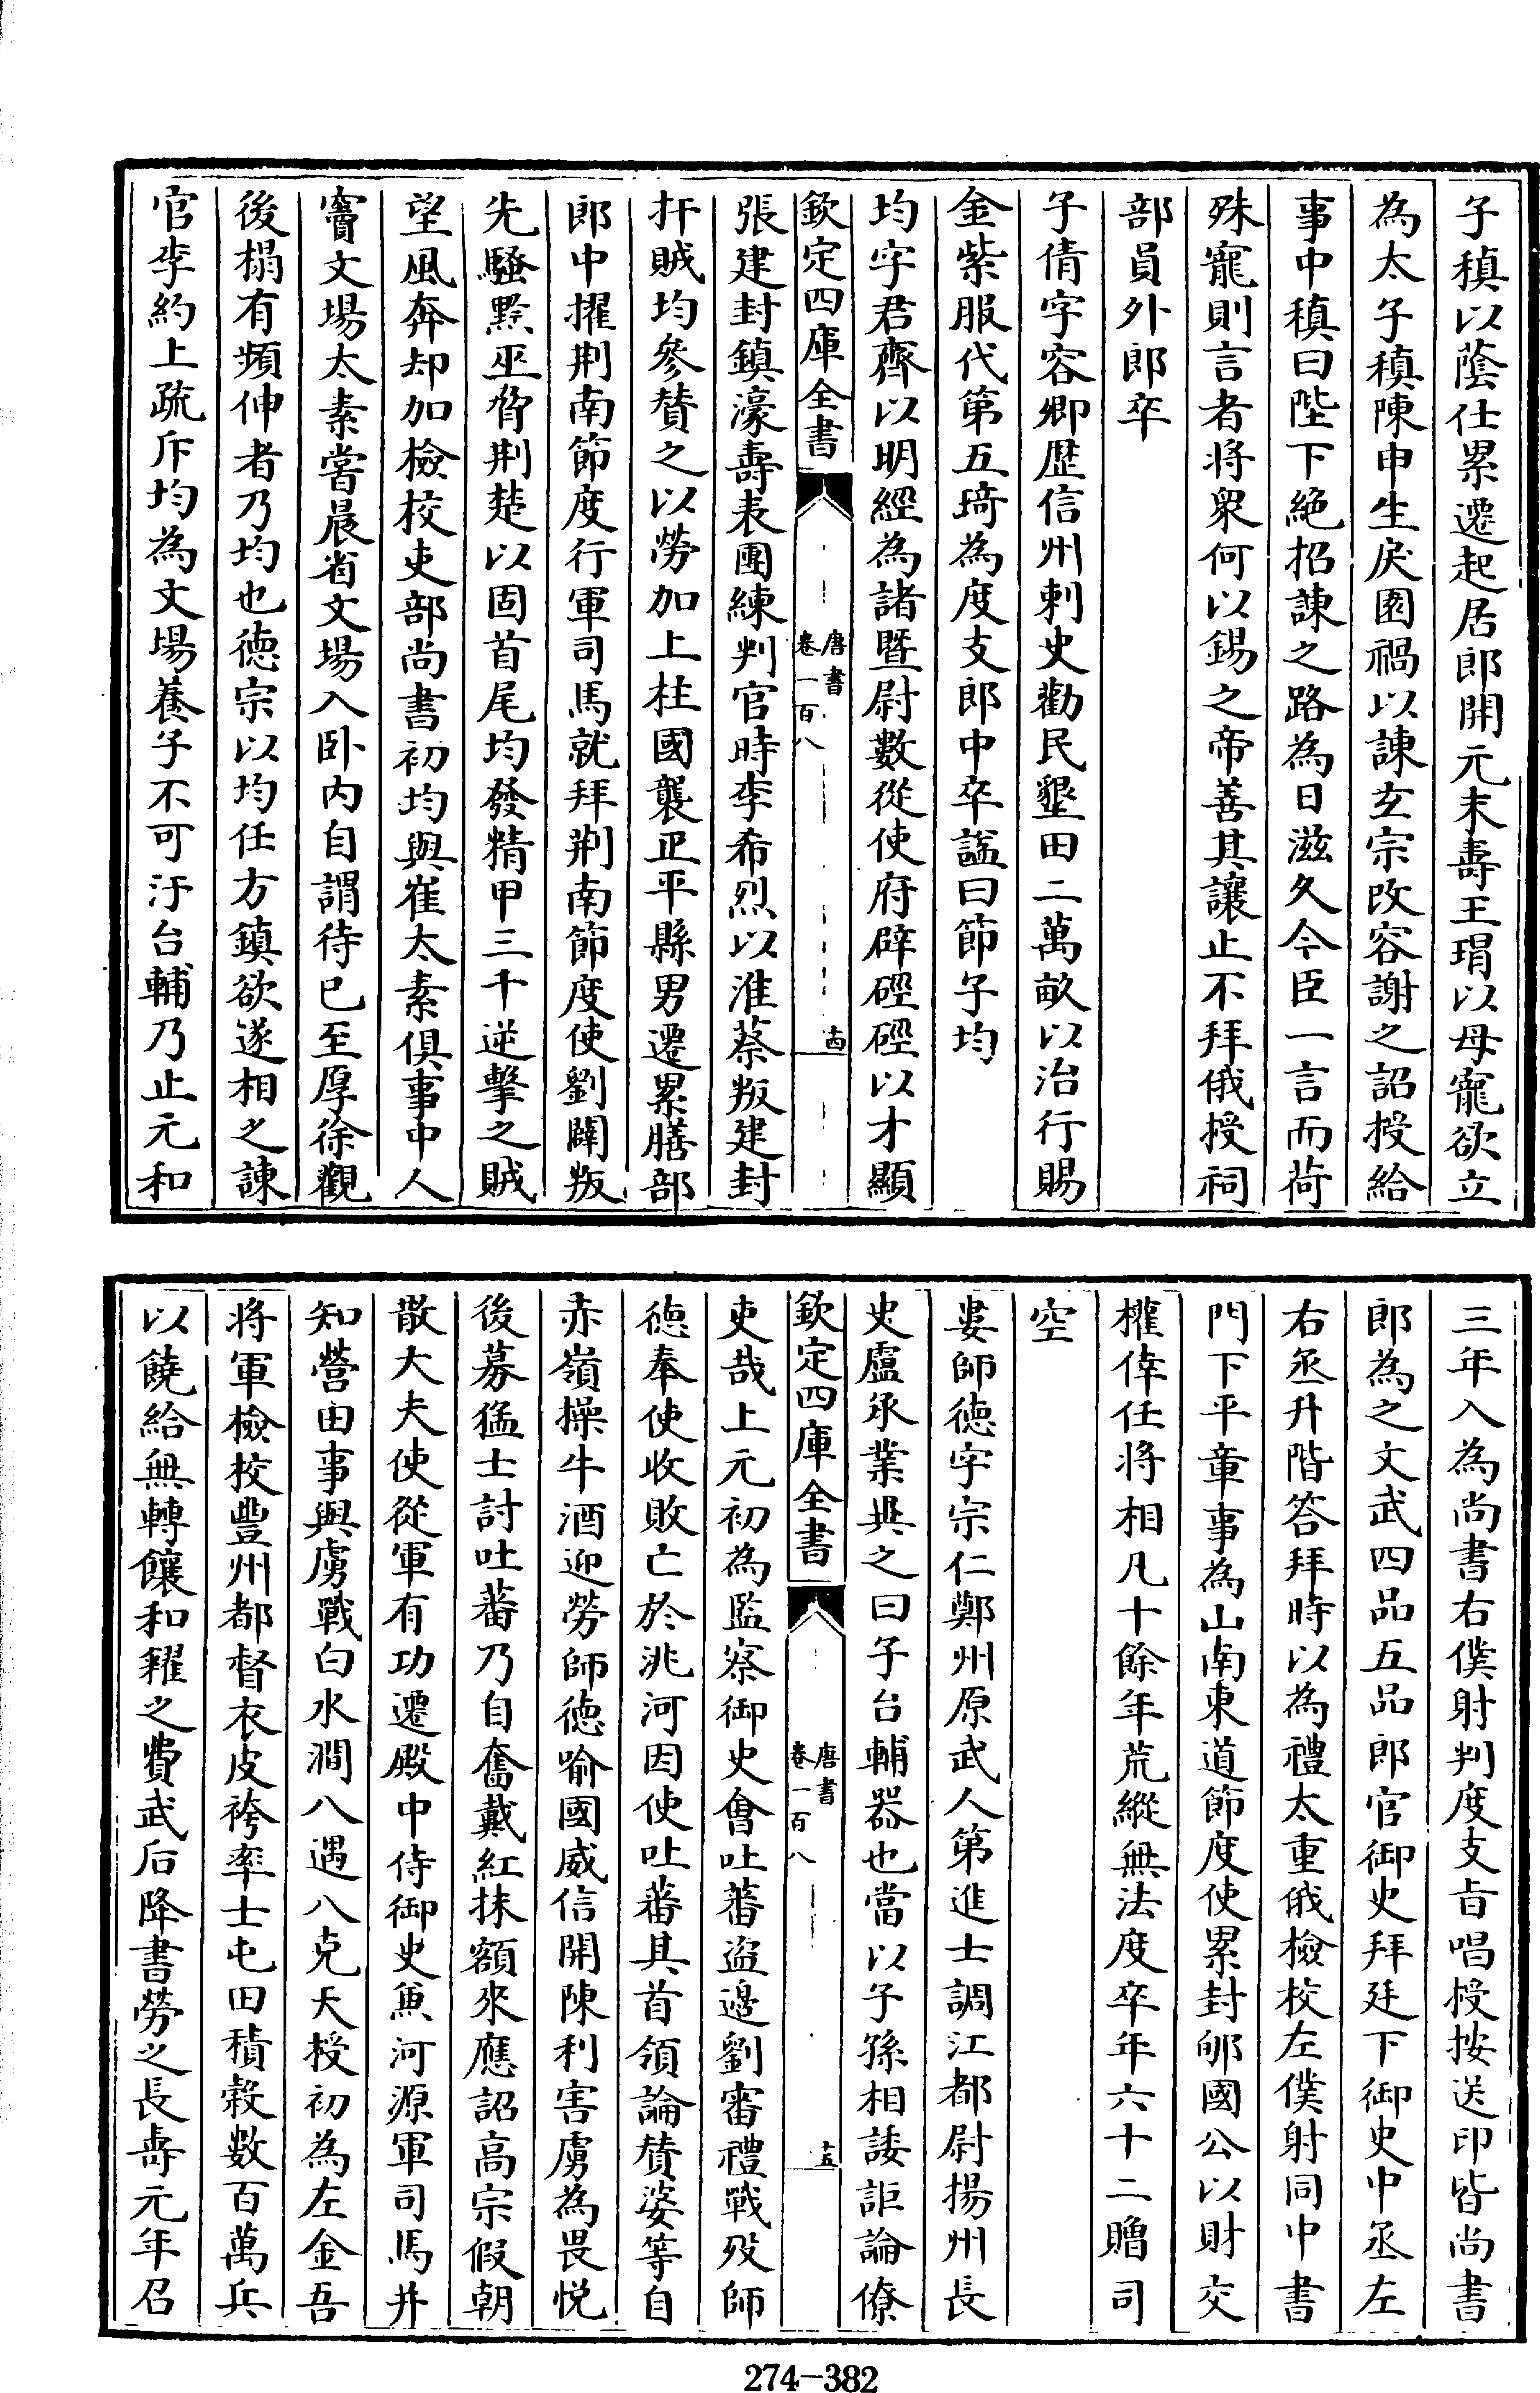 子稹以蔭仕累遷起居郎開元末壽王瑁以母寵欲立
為太子稹陳申生戾園禍以諫玄宗改容謝之詔授給
事中稹曰陛下絶招諫之路為日滋久今臣一言而荷
殊寵則言者将衆何以錫之帝善其讓止不拜俄授祠
部員外郎卒
子倩字容卿歴信州刺史勸民墾田二萬畝以治行賜
金紫服代第五琦為度支郎中卒諡曰節子均
均字君齊以明經為諸暨尉數從使府辟硜硜以才顯
欽定四庫全書
唐書
卷一百八
十四
張建封鎮濠壽表團練判官時李希烈以淮蔡叛建封
扞賊均參賛之以勞加上柱國襲正平縣男遷累膳部
郎中擢荆南節度行軍司馬就拜荆南節度使劉闢叛
先騷黔巫脅荆楚以固首尾均發精甲三千逆擊之賊
望風奔却加檢校吏部尚書初均與崔太素俱事中人
竇文場太素嘗晨省文場入卧内自謂待已至厚徐觀
後榻有頻伸者乃均也德宗以均任方鎮欲遂相之諫
官李約上疏斥均為文場養子不可汙台輔乃止元和
三年入為尚書右僕射判度支㫖唱授按送印皆尚書
郎為之文武四品五品郎官御史拜廷下御史中丞左
右丞升階答拜時以為禮太重俄檢校左僕射同中書
門下平章事為山南東道節度使累封郇國公以財交
權倖任将相凡十餘年荒縱無法度卒年六十二贈司
空
婁師徳字宗仁鄭州原武人第進士調江都尉揚州長
史盧承業異之曰子台輔器也當以子孫相諉詎論僚
欽定四庫全書
唐書
卷一百八
十五
吏哉上元初為監察御史會吐蕃盗邊劉審禮戰殁師
徳奉使收敗亡於洮河因使吐蕃其首領論賛婆等自
赤嶺操牛酒迎勞師徳喻國威信開陳利害虜為畏悦
後募猛士討吐蕃乃自奮戴紅抹額來應詔高宗假朝
散大夫使從軍有功遷殿中侍御史兼河源軍司馬并
知營田事與虜戰白水澗八遇八克天授初為左金吾
将軍檢校豐州都督衣皮袴率士屯田積穀數百萬兵
以饒給無轉饟和糴之費武后降書勞之長壽元年召
274-382